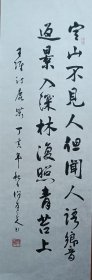 空山不見人但聞人語響
返景入深林復照青苔上
王維詩鹿柴丁亥年